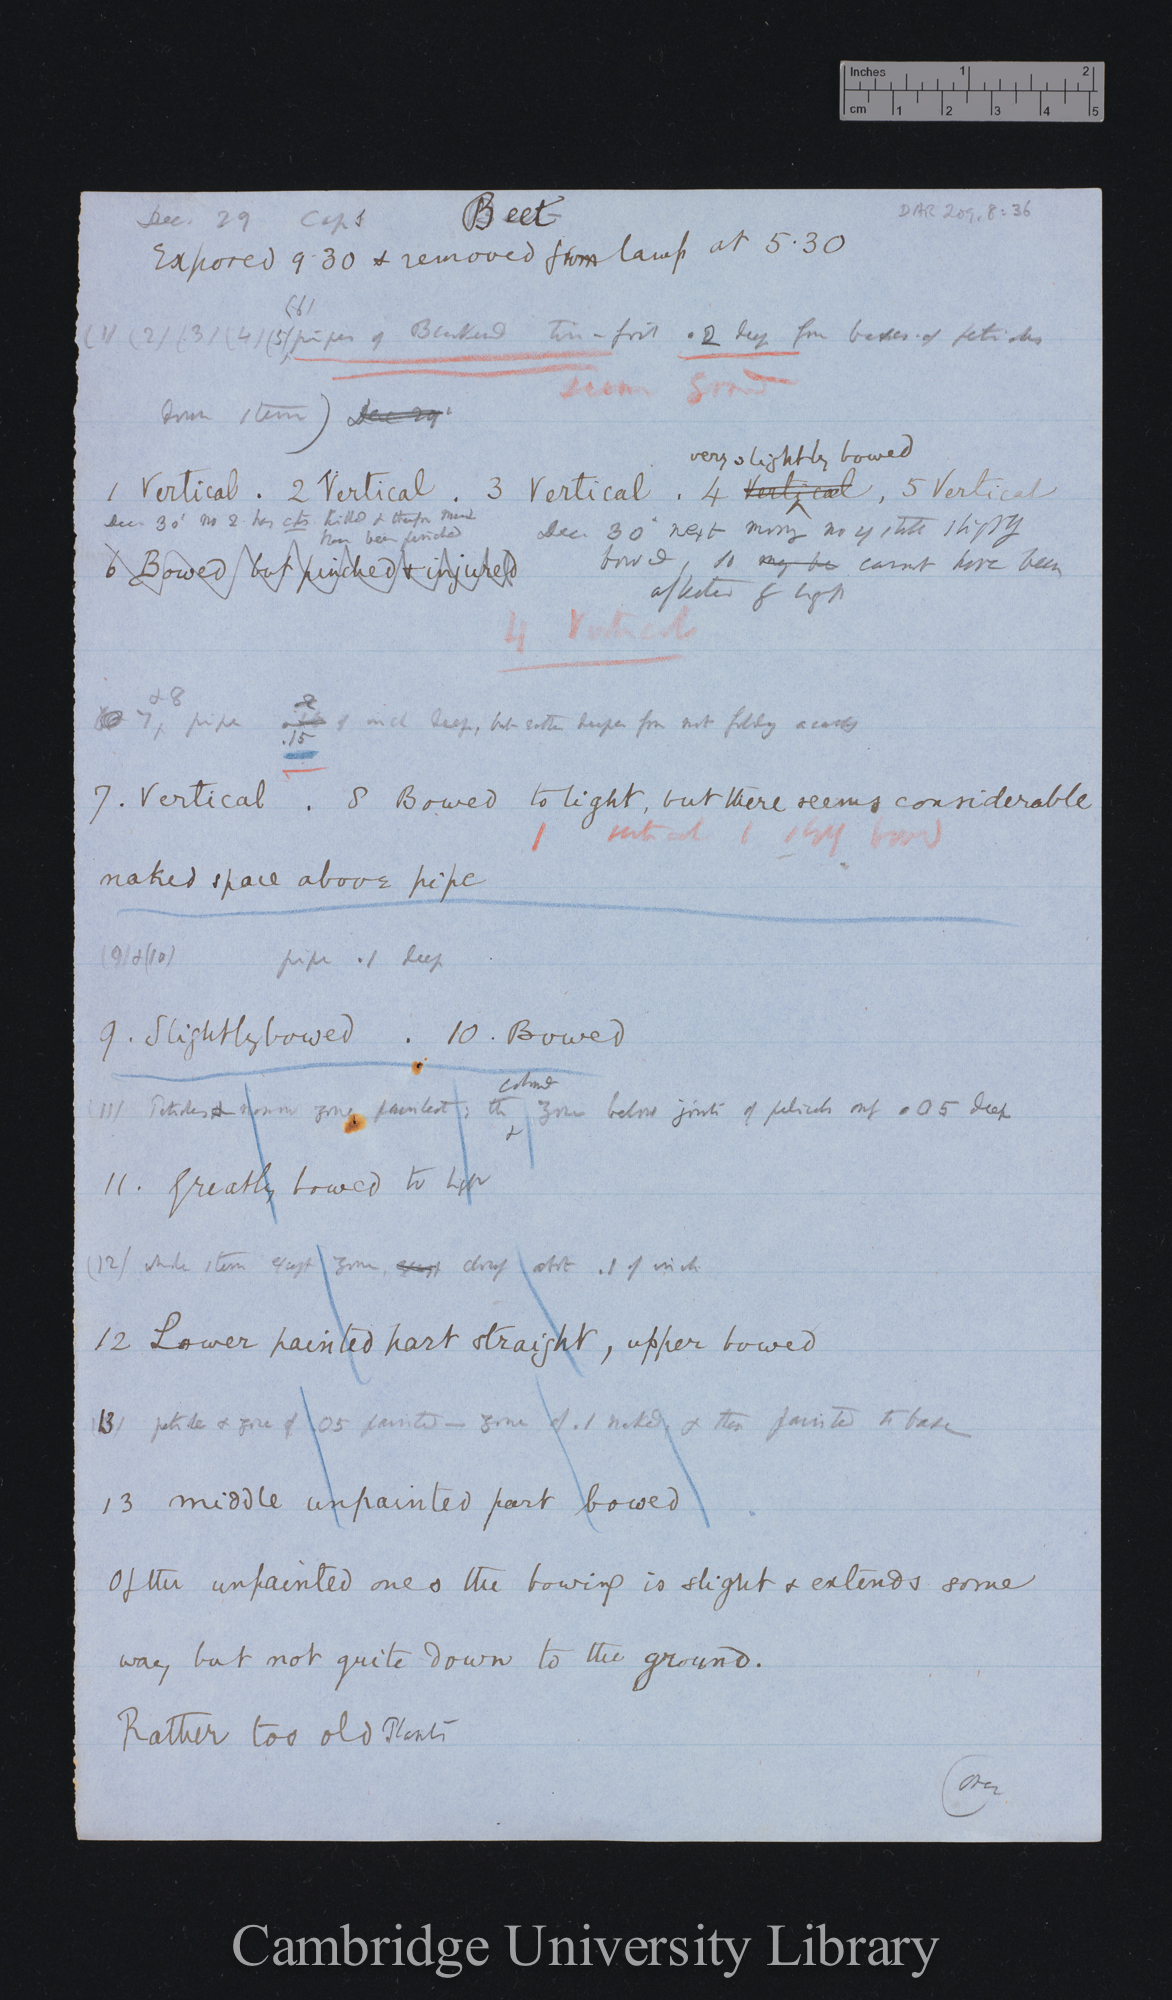 Inches 1 2
cm 1 2 3 4 5
Dec. 29 Caps Beet DAR 209.8:36
Exposed 9.30 & removed from lamp at 5.30
(6)
(1) (2) (3) (4) (5) pipes of Blackened tin-foil .2 deep from bases of petioles
down stem) Dec 29
very slightly bowed
1 Vertical. 2 Vertical. 3 Vertical. 4 Vertical, 5 Vertical
Dec. 30' no 2 has cots. killed & therefore must
have been pinched
Dec. 30' next morng no 4 still slightly
6 Bowed but pinched & injured
bowed, so may be cannot have been
affected by light
4 Vertical
& 8
7, pipe
.15
of inch deep, but rather deeper from not folding
7. Vertical. 8 Bowed to light, but there seems considerable
1 vertical 1 slightly bowed
naked space above pipe
(9) & (10) pipe .1 deep
9. Slightly bowed. 10. Bowed
(11) Petioles & narrow zone painted; the zone below joints of petioles only .05 deep
&
11. Greatly bowed to light
(12) whole stem except zone, except about .1 of inch
12 Lower painted part straight, upper bowed
(13) petiole & zone of .05 painted — zone of .1 naked, & then painted to base
13 middle unpainted part bowed
Of the unpainted ones the bowing is slight & extends some
way but not quite down to the ground.
Rather too old Plants
(over
Cambridge University Library